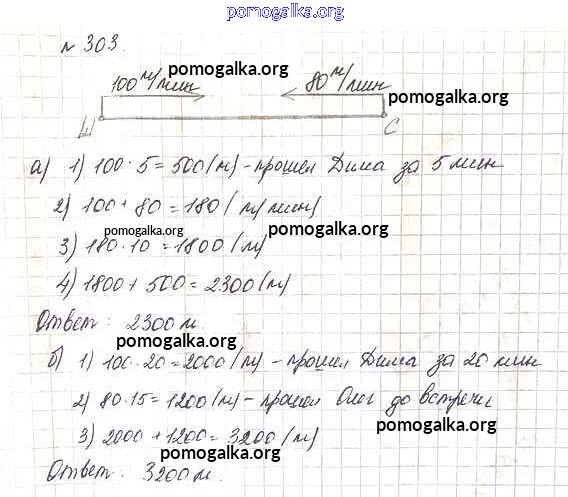 pomogalka.org
№ 303.
pomogalka.org
100 м/мин 80 м/мин
pomogalka.org
Ш С
а) 1) 100 · 5 = 500 (м) - прошел Дима за 5 мин
2) 100 + 80 = 180 (м/мин)
pomogalka.org
pomogalka.org
3) 180 · 10 = 1800 (м)
4) 1800 + 500 = 2300 (м)
Ответ: 2300 м.
pomogalka.org
б) 1) 100 · 20 = 2000 (м) - прошел Дима за 20 мин
2) 80 · 15 = 1200 (м) - прошел Олег до встречи
3) 2000 + 1200 = 3200 (м)
pomogalka.org
Ответ: 3200 м.
pomogalka.org